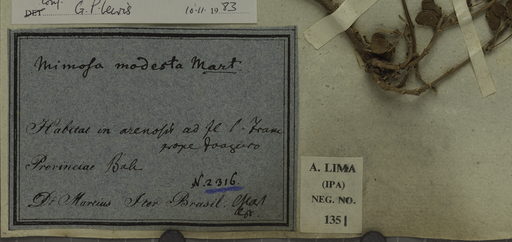 conf. G. P. Lewis 10·11·1983
DET.
Mimosa modesta Mart
Habitat in arenosis ad fl. S. Franc
prope Joazeiro
Provinciae Bah
N. 2316.
Dr Martius Iter Brasil.
A. LIMA
(IPA)
NEG. NO.
1351